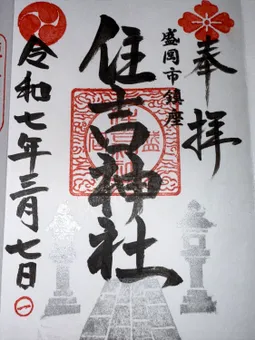 奉拝
盛岡市鎮座
住吉神社
令和七年三月七日
一